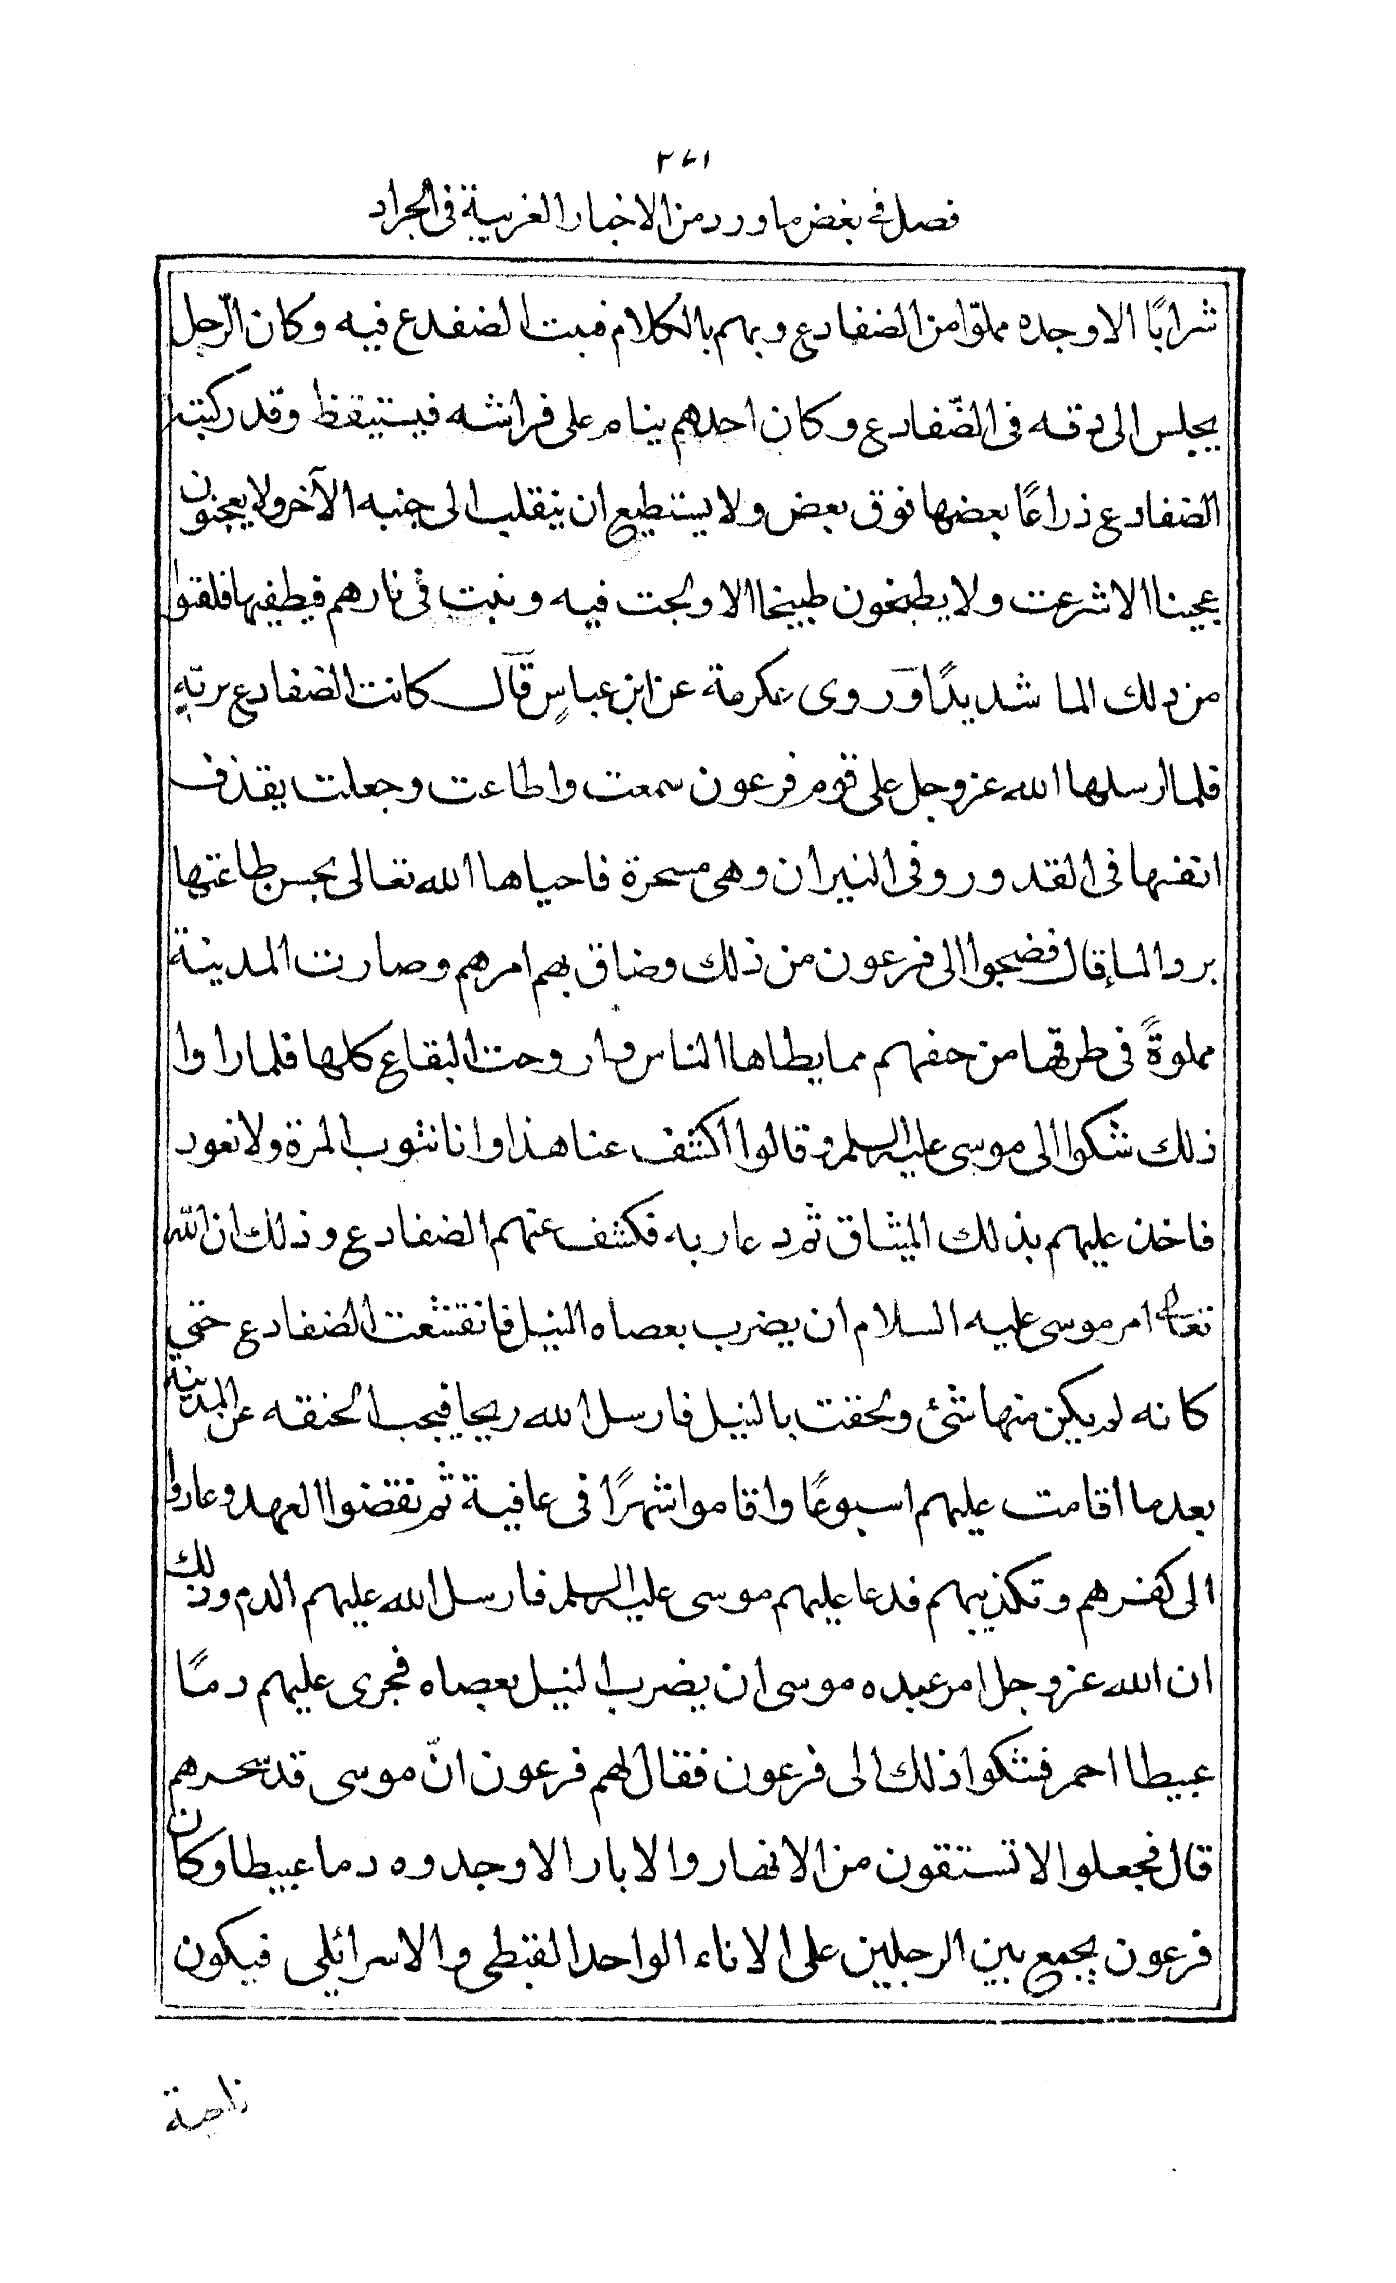 ٢٧١
فصل في بعض ما ورد من الاخبار الغريبة في الجراد
شرابًا الا وجده مملوّا من الضفادع ويهم بالكلام فيثب الضفدع فيه وكان الرّجل
يجلس الى ذقنه في الضّفادع وكان احدهم ينام على فراشه فيستيقظ وقد ركبته
الضفادع ذراعًا بعضها فوق بعض ولا يستطيع ان ينقلب الى جنبه الآخر ولا يعجنون
عجينا الا شرعت ولا يطبخون طبيخا الا ولجت فيه وثبت في نارهم فيطفيها فلقوا
من ذلك الما شديدًا وروى عكرمة عن ابن عباسٍ قال كانت الضفادع بريّه
فلما ارسلها الله عز وجل على قوم فرعون سمعت واطاعت وجعلت يقذف
انفسها في القدور وفي النيران وهي مسحرة فاحياها الله تعالى بحسن طاعتها
برد الماء قال فضجوا الى فرعون من ذلك وضاق بهم امرهم وصارت المدينة
مملوةً في طرقها من جفهم مما يطاها الناس واروحت البقاع كلها فلما راوا
ذلك شكوا الى موسى عليه السلم وقالوا اكشف عنا هذا وانا نتوب المرة ولا نعود
فاخذ عليهم بذلك الميثاق ثم دعا ربه فكشف عنهم الضفادع وذلك ان الله
تعالى امر موسى عليه السلام ان يضرب بعصاه النيل فانقشعت الضفادع حتى
كانه لم يكن منها شئ ولحقت بالنيل فارسل الله ريحا عن المدينة
بعد ما اقامت عليهم اسبوعًا واقاموا شهرًا في عافية ثم نقضوا العهد وعادوا
الى كفرهم وتكذيبهم فدعا عليهم موسى عليه السلم فارسل الله عليهم الدم وذلك
ان الله عز وجل امر عبده موسى ان يضرب النيل بعصاه فجرى عليهم دمًا
عبيطا احمر فشكوا ذلك الى فرعون فقال لهم فرعون انّ موسى قد سحرهم
قال فجعلوا لا تستقون من الانهار والابار الا وجدوه دما عبيطا وكان
فرعون يجمع بين الرجلين على الاناء الواحد القبطي والاسرائلي فيكون